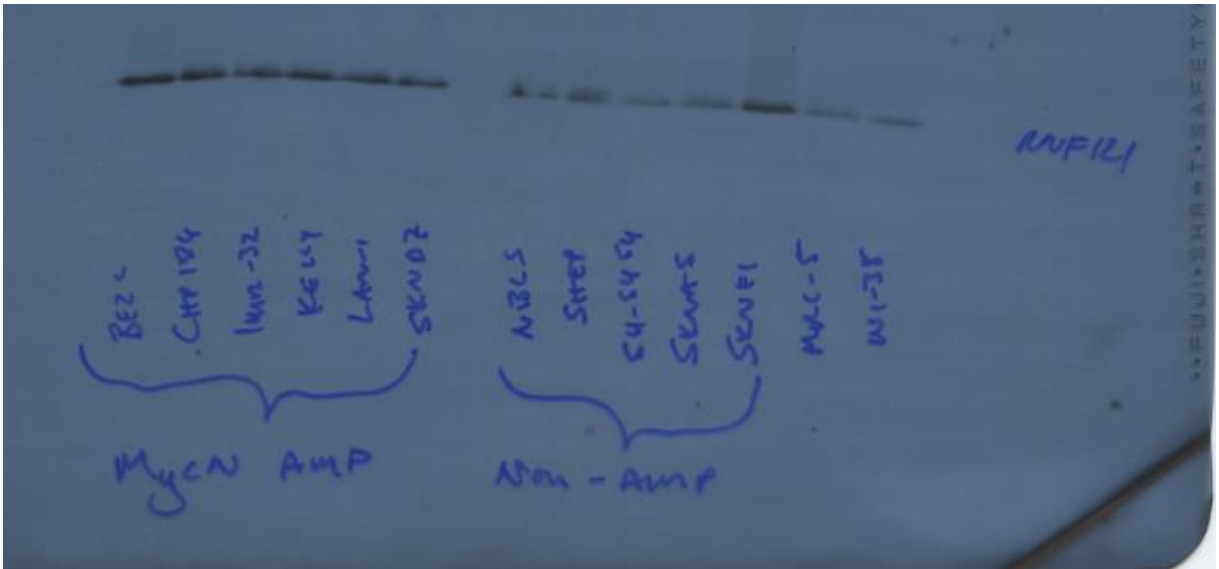 RNF121
BE2C
CHP134
IMR-32
KELLY
LAN-1
SKNDZ
NBLS
SHEP
SH-SY5Y
SKNAS
SKNFI
MRC-5
WI-38
MycN AMP
Non-AMP
FUJI•SHRAT•SAFETY